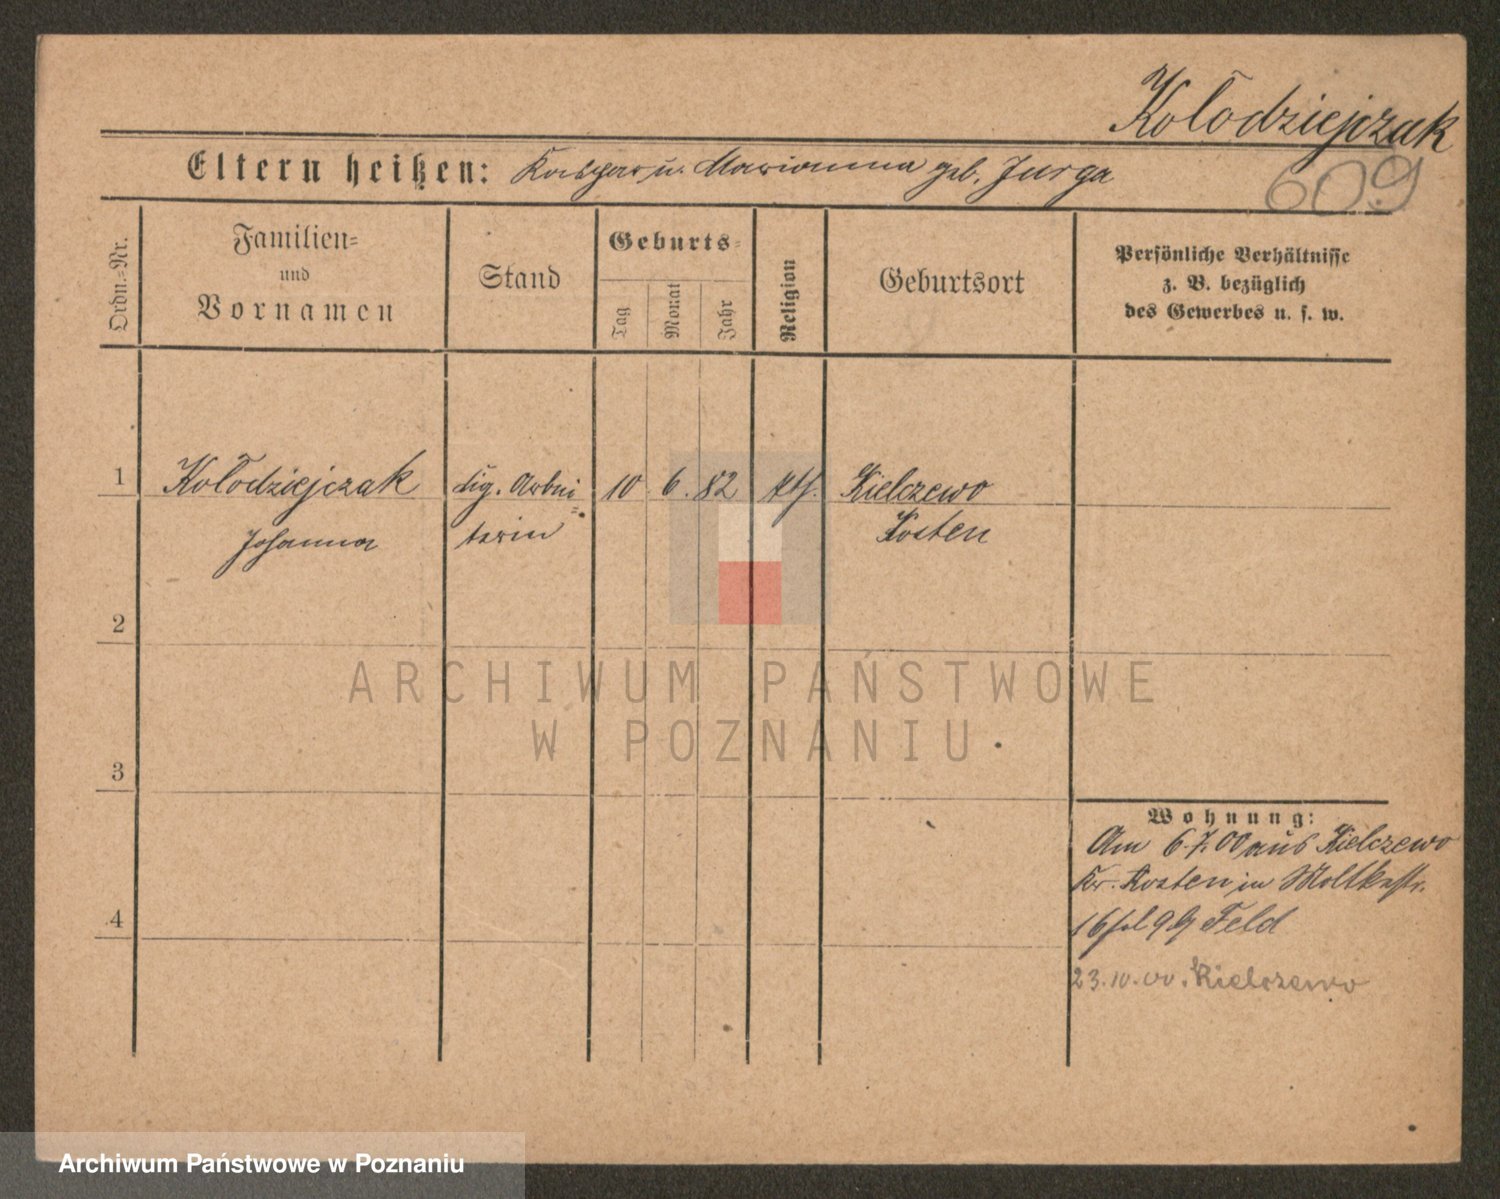 Kołodziejczak
609
Eltern heißen: Kasper u. Marianna geb. Jurga
Ordn.=Nr.
Familien=
und
Vornamen
Stand
Geburts=
Tag
Monat
Jahr
Religion
Geburtsort
Persönliche Verhältnisse
z. B. bezüglich
des Gewerbes u. s. w.
1 Kołodziejczak
Johanna
Zig. Arbei=
terin
10 6. 82 kth. Kielczewo
Kosten
2
3
4
Wohnung:
Am 6.7.00 aus Kielczewo
Kr. Kosten in Moltkestr.
16 Feld
23.10.00. Kielczewo
ARCHIWUM PAŃSTWOWE
W POZNANIU
Archiwum Państwowe w Poznaniu